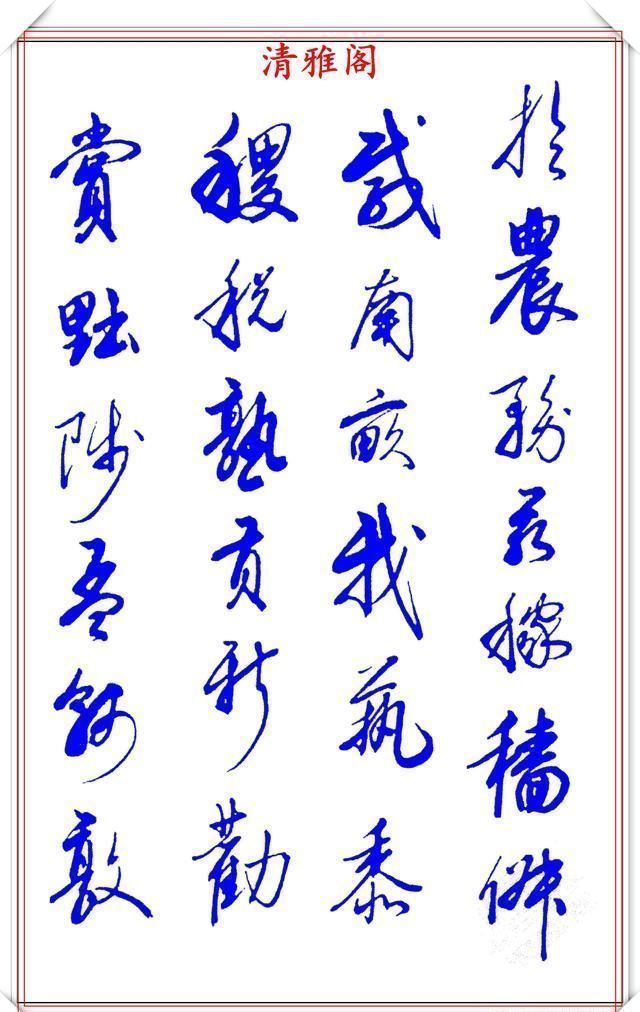 清雅阁
於農務茲稼穡俶
載南畝我藝黍
稷稅熟貢新勸
賞黜陟孟軻敦